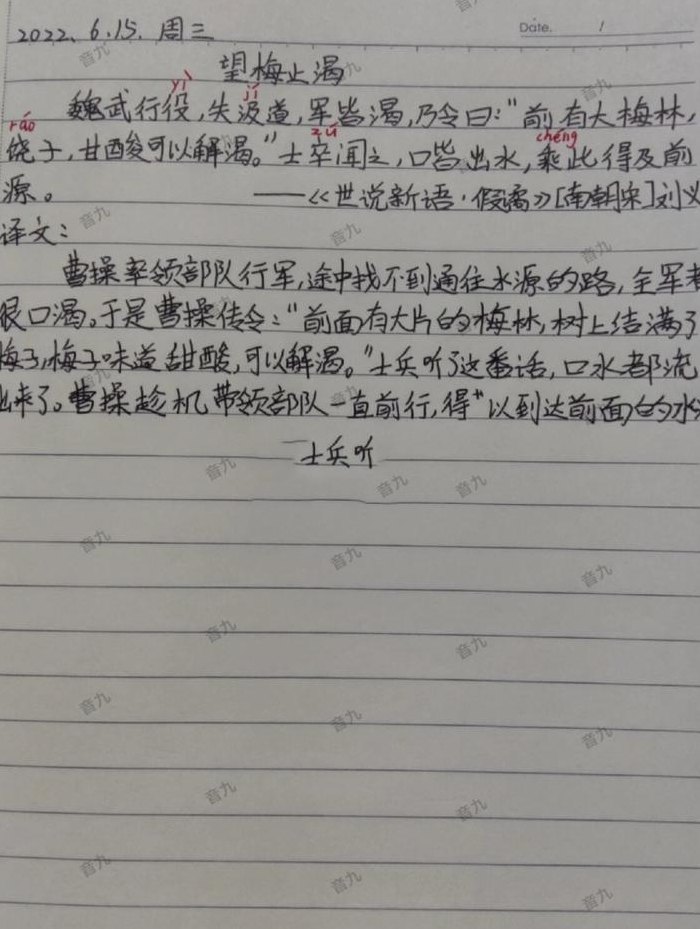 Date. /
2022. 6.15. 周三
望梅止渴
yì jí
魏武行役,失汲道,军皆渴,乃令曰:"前有大梅林,
ráo zú chéng
饶子,甘酸可以解渴。"士卒闻之,口皆出水,乘此得及前
源。 ——《世说新语·假谲》[南朝宋]刘义
译文:
曹操率领部队行军,途中找不到通往水源的路,全军都
很口渴。于是曹操传令:"前面有大片的梅林,树上结满了
梅子,梅子味道甜酸,可以解渴。"士兵听了这番话,口水都流
出来了。曹操趁机带领部队一直前行,得以到达前面的水
士兵听
音九